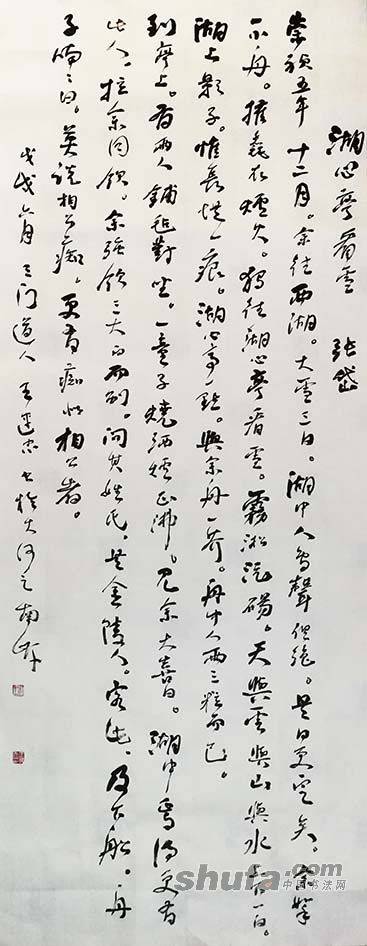 湖心亭看雪 张岱
崇祯五年十二月。余往西湖。大雪三日。湖中人鸟聲俱绝。是日更定矣。余拏
一小舟。擁毳衣爐火。獨往湖心亭看雪。霧淞沆碭。天與雲與山與水上下一白。
湖上影子。惟長堤一痕。湖心亭一點。與余舟一芥。舟中人兩三粒而已。
到亭上。有兩人鋪氈對坐。一童子燒酒爐正沸。見余大喜曰。湖中焉得更有
此人。拉余同飲。余強飲三大白而别。問其姓氏。是金陵人。客此。及下船。舟
子喃々曰。莫說相公癡。更有癡似相公者。
戊戌六月 三门道人 王 忠 書於大河之南岸
shufa.com
中国书法网